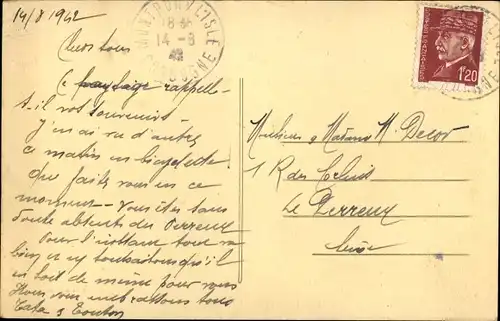 14/8 1942
Chers tous
Ce paysage rappelle-
t-il vos souvenirs -
J'en ai vu d'autres
ce matin en bicyclette.
Que faites vous en ce
moment - Vous êtes sans
doute absents du Perreux
Pour l'instant tout va
bien et ns souhaitons qu'il
en soit de même pour vous
Nous vous embrassons tous
Tata & Tonton
MONTBRON L'ISLE
18 H
14 -8
42
1F20
Monsieur & Madame M. Decor
1 R des
Le Perreux
Seine